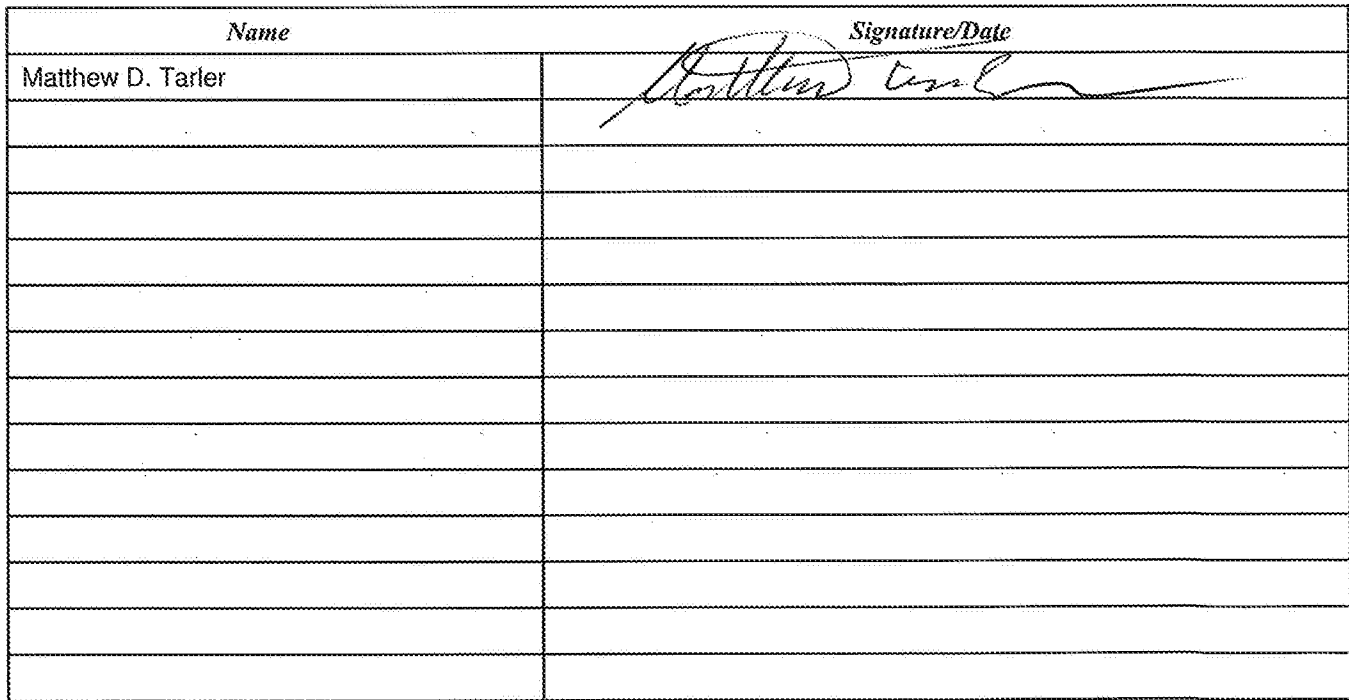 Name Signature/Date
Matthew D. Tarler Matthew D Tarler